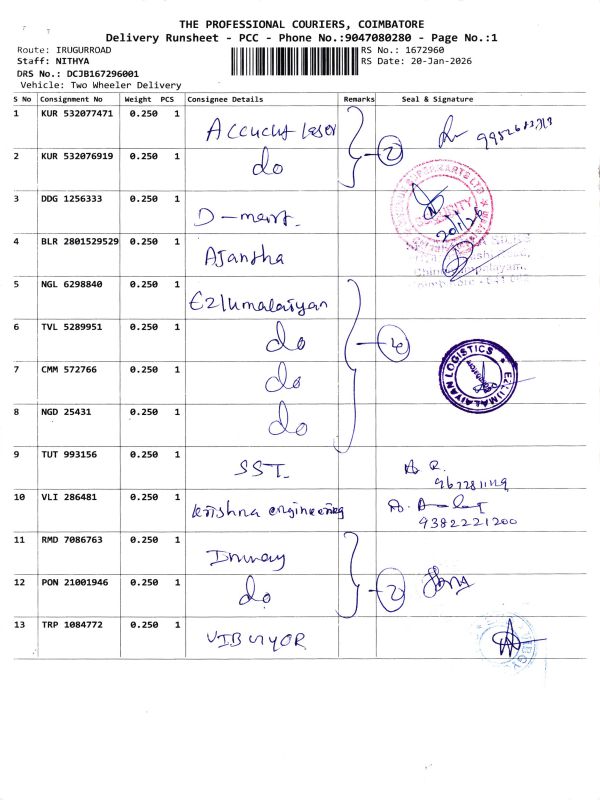 THE PROFESSIONAL COURIERS, COIMBATORE
Delivery Runsheet - PCC - Phone No.:9047080280 - Page No.:1
Route: IRUGURROAD
RS No.: 1672960
Staff: NITHYA
RS Date: 20-Jan-2026
DRS No.: DCJB167296001
Vehicle: Two Wheeler Delivery
S No Consignment No Weight PCS Consignee Details Remarks Seal & Signature
1 KUR 532077471 0.250 1 Accucut laser
2 KUR 532076919 0.250 1 do 2
3 DDG 1256333 0.250 1 D-mart
20/1/26
4 BLR 2801529529 0.250 1 Ajantha
5 NGL 6298840 0.250 1 Ezlumalaiyan
6 TVL 5289951 0.250 1 do 4
7 CMM 572766 0.250 1 do
EZLUMALAIYAN LOGISTICS
8 NGD 25431 0.250 1 do
9 TUT 993156 0.250 1 SST
10 VLI 286481 0.250 1 krishna engineering
9382221200
11 RMD 7086763 0.250 1
12 PON 21001946 0.250 1 do 2
13 TRP 1084772 0.250 1 VIBGYOR